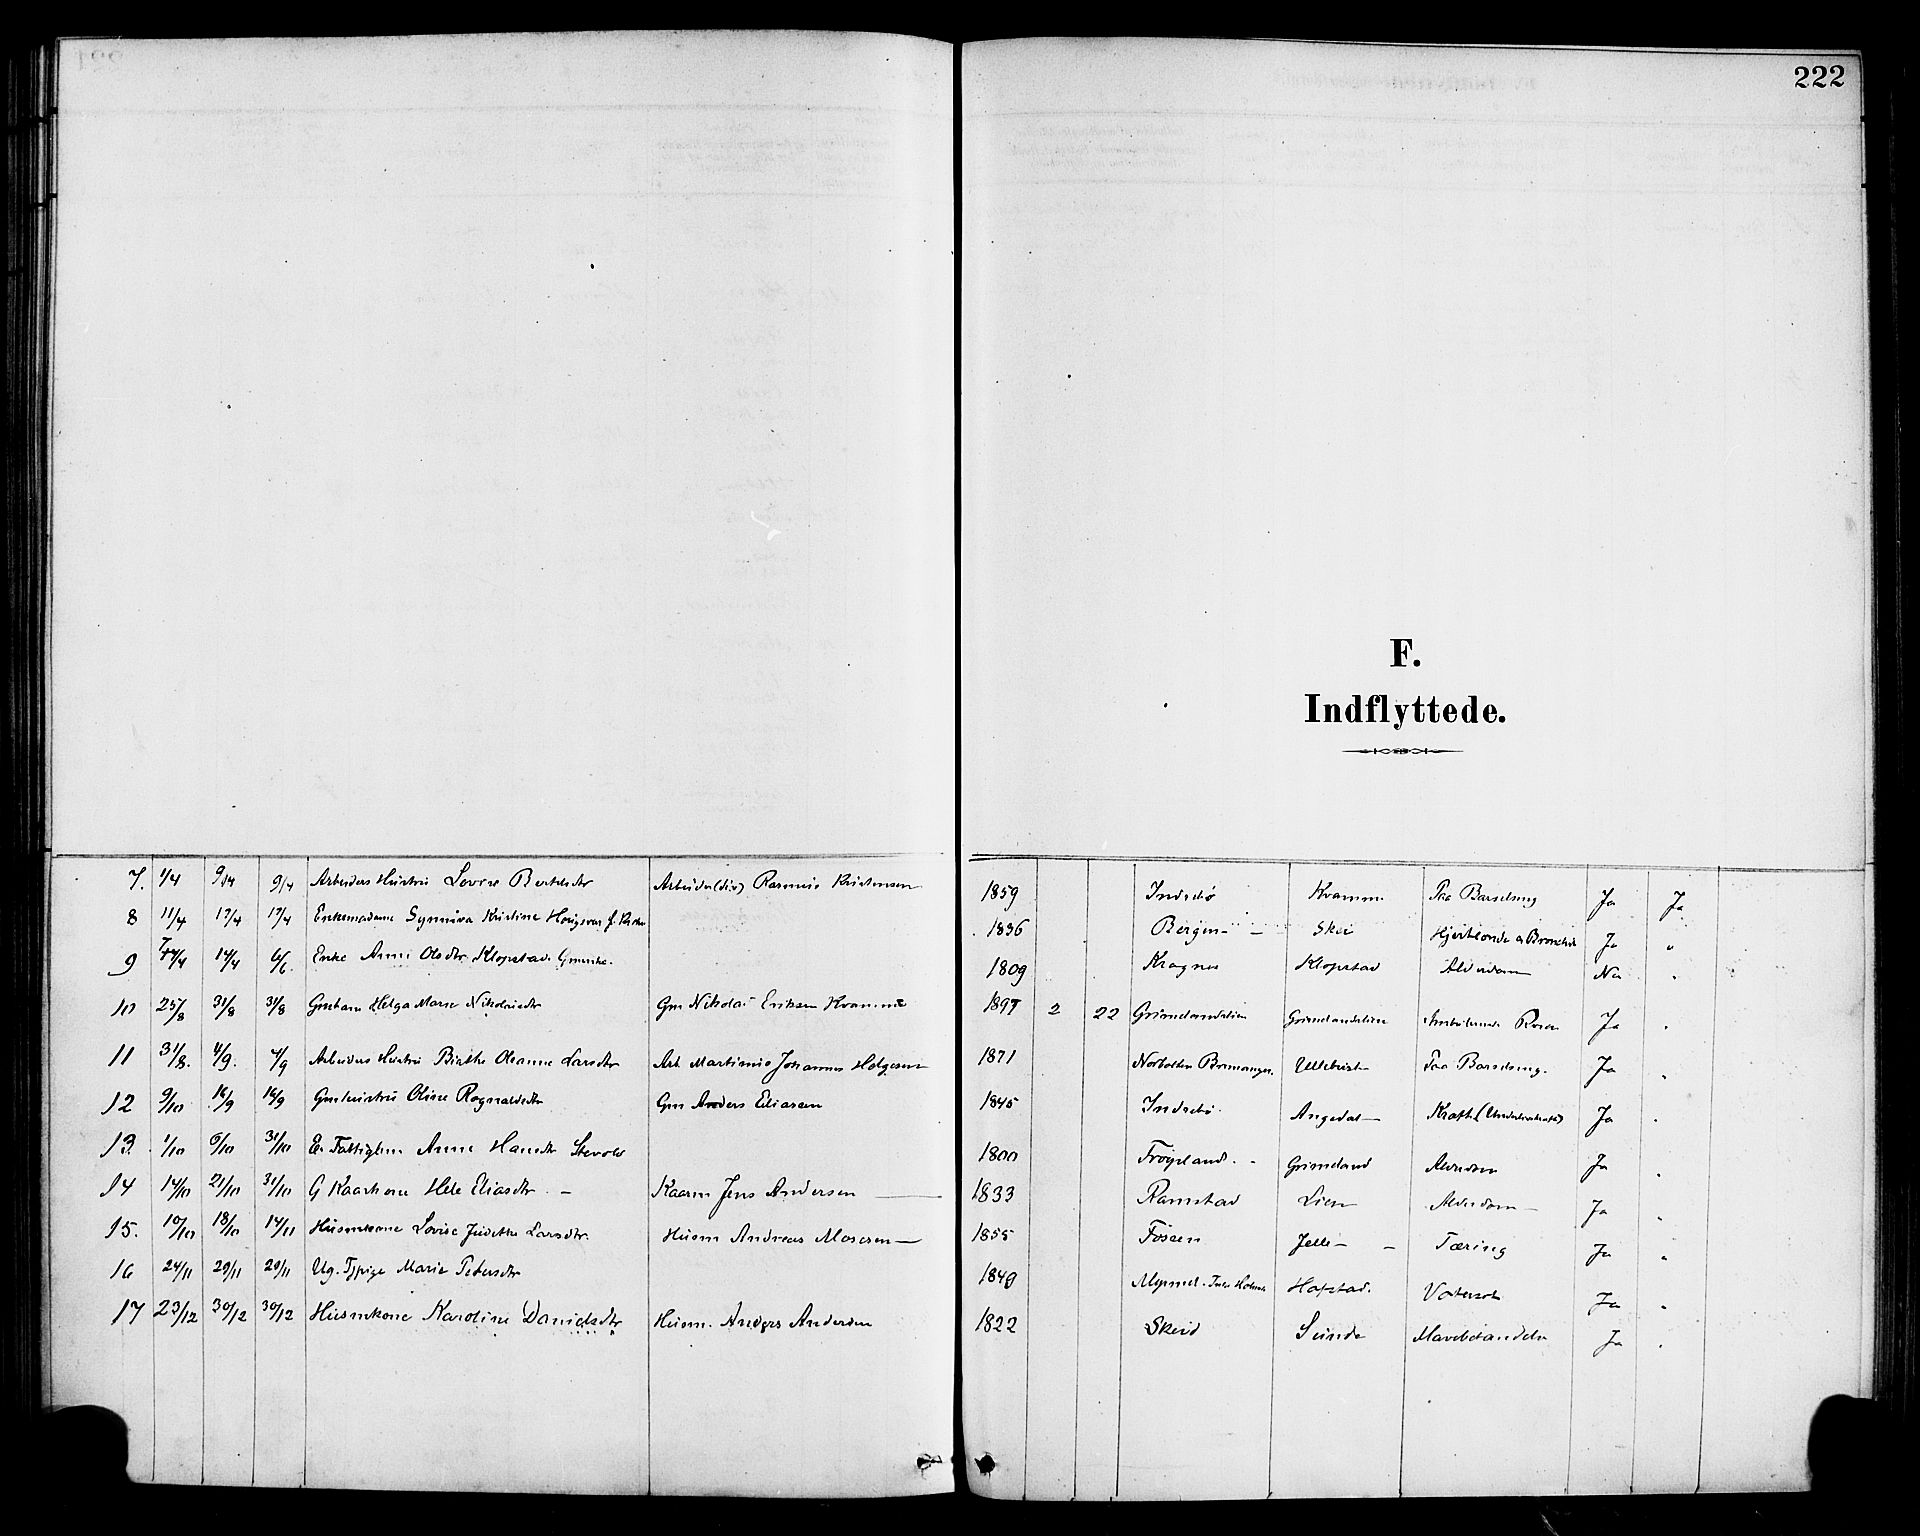 222
F.
Indflyttede.
7. 1/4 9/4 9/4 Arbeiders Hustru Lovise Bertelsdtr Arbeider (dix) Rasmus Kristensen 1859 Indrebø Kvamme Paa Barselseng Ja Ja
8 11/4 17/4 17/4 Enkemadame Synnøva Kristine 1836 Bergen Skei Ja "
9 14/4 6/6. Enke Anne Olsdtr Klopstad 1809 Klopstad Alderdom Nei "
10 25/8 31/8 31/8 Helga Marie Nikolaisdtr Gm Nikolai Eriksen Kvamme 1897 2 22 Grimelandslien Grimelandslien Rosen Ja "
11 31/8. 4/9. 4/9 Arbeiders Hustru Birthe Oleanne Larsdtr Arb. Martinus Johannes Helgesen 1871 Bremanger. Paa Barselseng. Ja "
12 9/10 16/9 16/9 Gmhustru Oline Ragnaldsdtr Gm Anders Eliasen 1845 Indrebø. Angedal Kræft (Underlivskræft) Ja "
13. 1/10 6/10 31/10 Anne Hansdtr Stevold 1800 Frøysland. Grimeland Alderdom Ja "
14 14/10 21/10 31/10 G Kaarkone Helle Eliasdtr Kaarm Jens Andersen 1833 Ramstad Lien Alderdom Ja "
15. 10/10 18/10 14/11 Husmkone Lovise Judithe Larsdtr. Husm Andreas Mosesen 1855 Fossen Jelle Tæring Ja "
16 24/11 29/11 29/11 Ug. Tjpige Marie Petersdtr 1849 Myrmel Hafstad. Vatersot Ja "
17 23/12 30/12 30/12 Husmkone Karoline Danielsdtr Husm. Anders Andersen 1822 Skeid Sunde Ja "